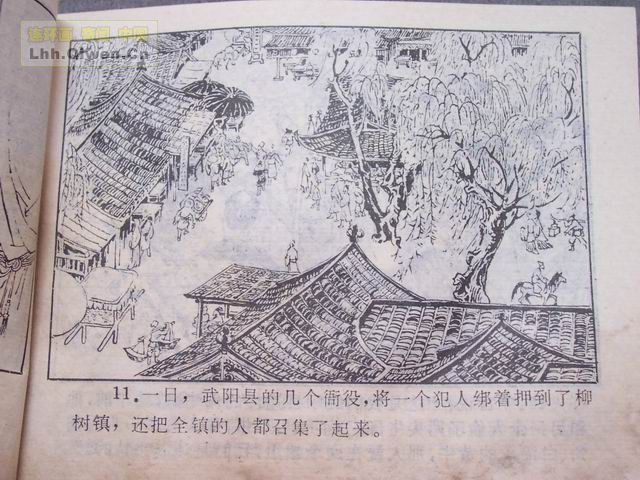 连环画 春闲 中网
Lhh.Qiwen.Cn
11.一日，武阳县的几个衙役，将一个犯人绑着押到了柳
树镇，还把全镇的人都召集了起来。